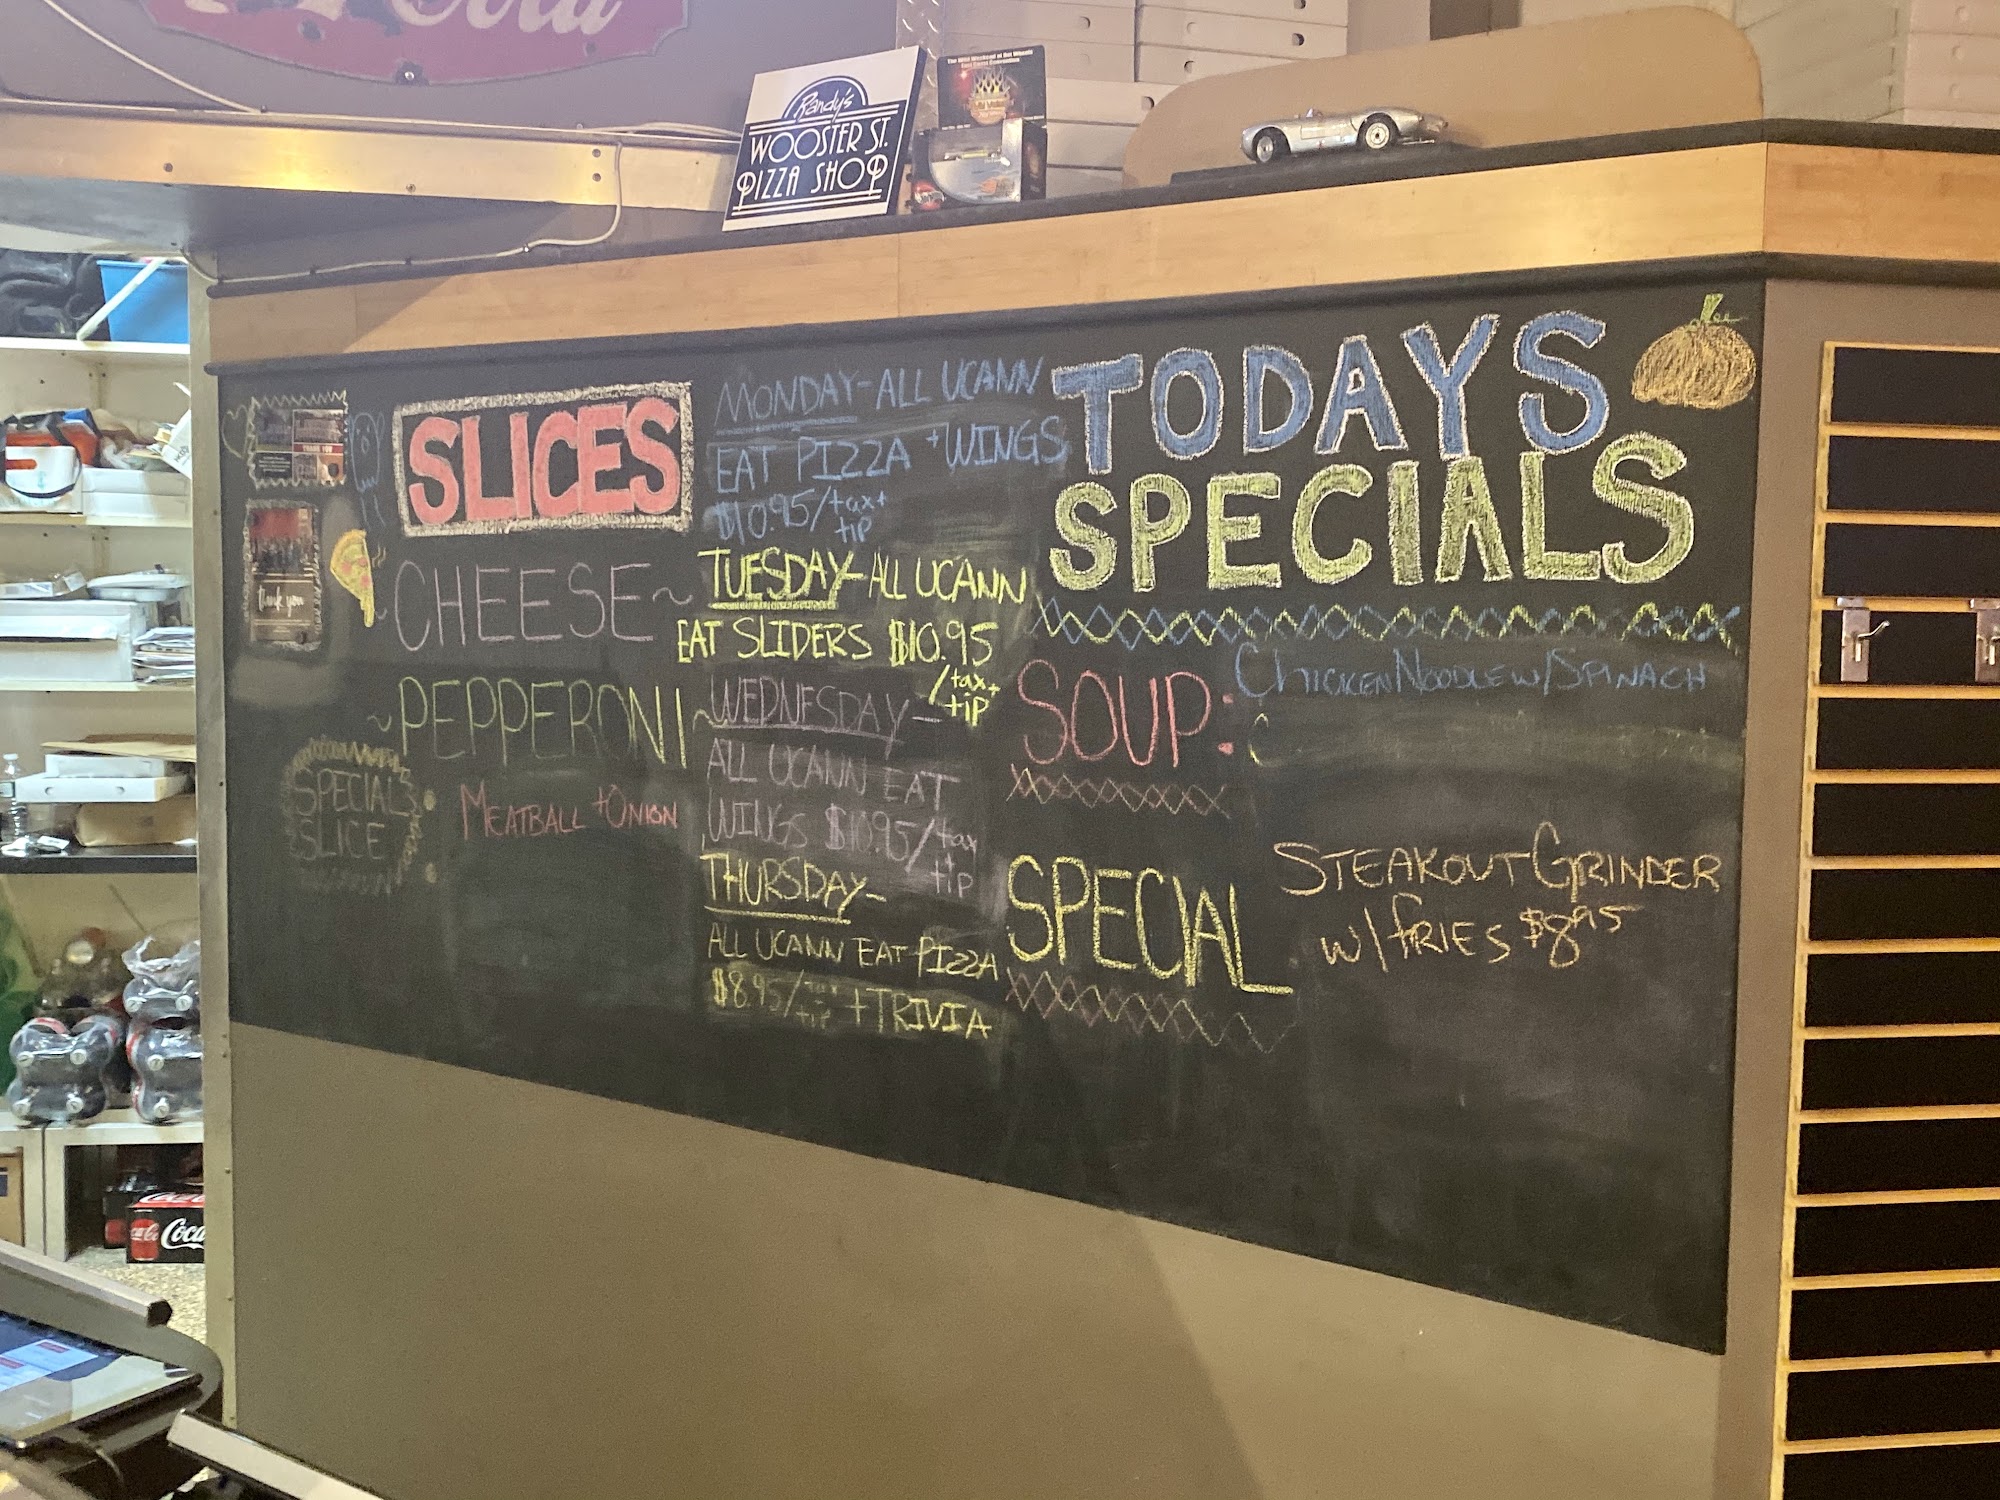 Cold
Randy's
WOOSTER ST.
PIZZA SHOP
SLICES
CHEESE ~
~ PEPPERONI ~
SPECIAL
SLICE
MEATBALL + ONION
thank you
MONDAY - ALL UCANN
EAT PIZZA + WINGS
$10.95/tax+
tip
TUESDAY - ALL UCANN
EAT SLIDERS $10.95
/tax+
tip
WEDNESDAY -
ALL UCANN EAT
WINGS $10.95/tax
+
tip
THURSDAY -
ALL UCANN EAT PIZZA
$8.95/tax
+tip + TRIVIA
TODAYS
SPECIALS
SOUP: CHICKEN NOODLE W/SPINACH
SPECIAL
STEAKOUT GRINDER
W/FRIES $8.95
Coca